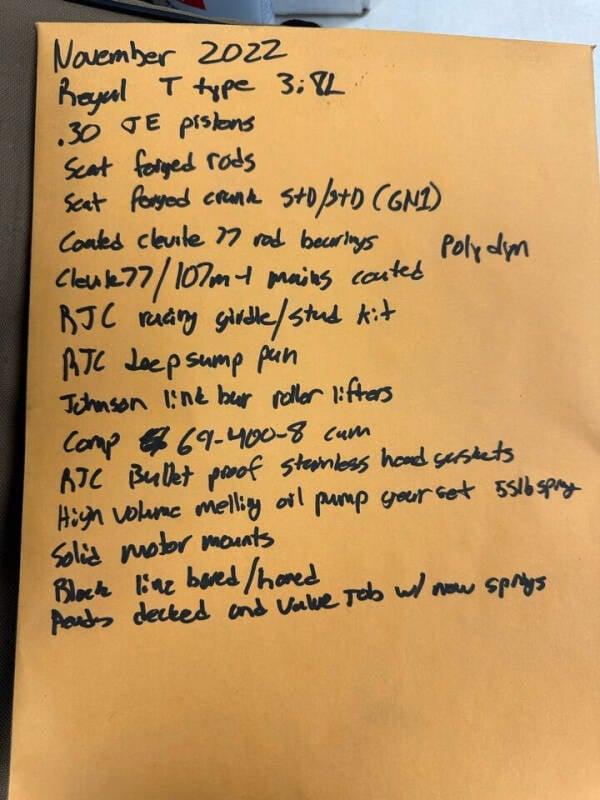 November 2022
Regal T type 3.8L
.30 JE pistons
Scat forged rods
Scat forged crank STD/STD (GN1)
Coated clevite 77 rod bearings Polydyn
Clevite77/107m-1 mains coated
RJC racing girdle/stud kit
RJC deep sump pan
Johnson link bar roller lifters
Comp 69-400-8 cam
RJC Bullet proof stainless head gaskets
High volume melling oil pump gear set 55lb spring
Solid motor mounts
Block line bored/honed
Heads decked and valve Job w/ new springs